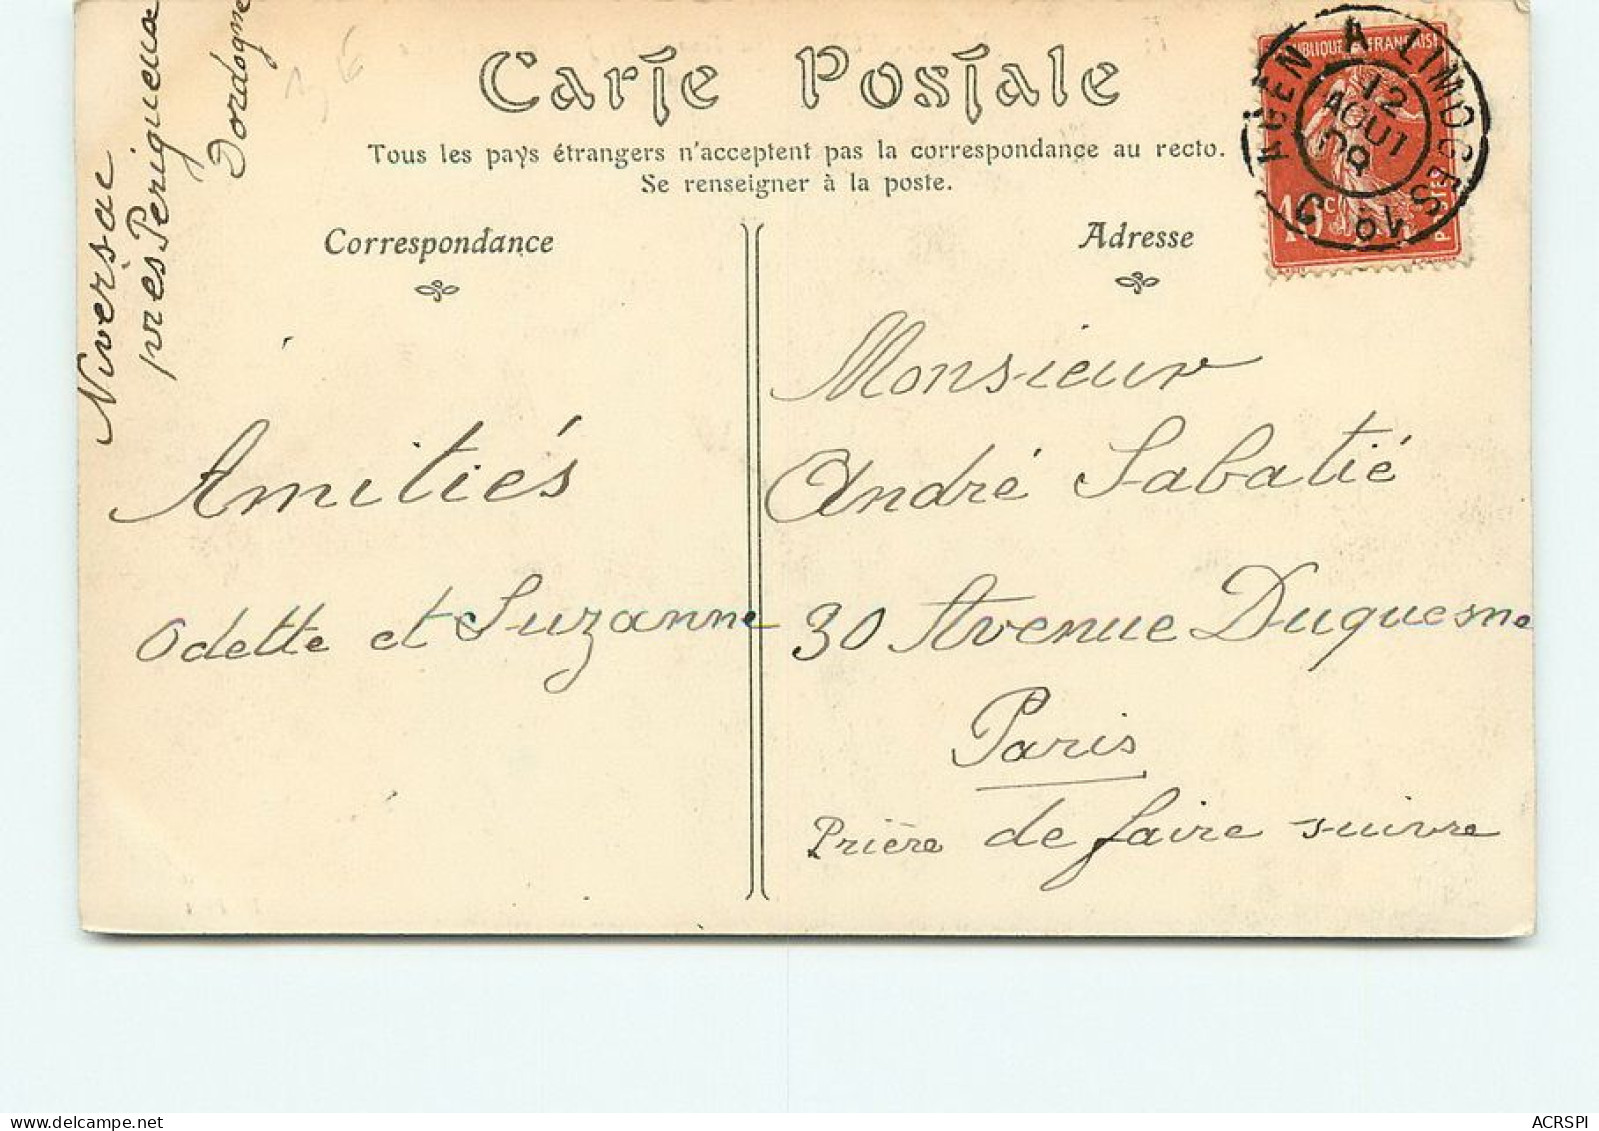 Niversac
près Perigueux
Dordogne
Carte Postale
Tous les pays étrangers n'acceptent pas la correspondance au recto.
Se renseigner à la poste.
Correspondance
Adresse
RÉPUBLIQUE FRANÇAISE
10c
POSTES
AGEN A LIMOGES
12
AOUT
09
1º
Amitiés
Odette et Suzanne
Monsieur
André Sabatié
30 Avenue Duquesne
Paris
Prière de faire suivre
ACRSPI